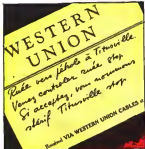 WESTERN
UNION
Ruée vers pétrole à Titusville
Venez contrôler ruée Stop
Si acceptez, vous nommons
shérif Titusville stop
VIA WESTERN UNION CABLES